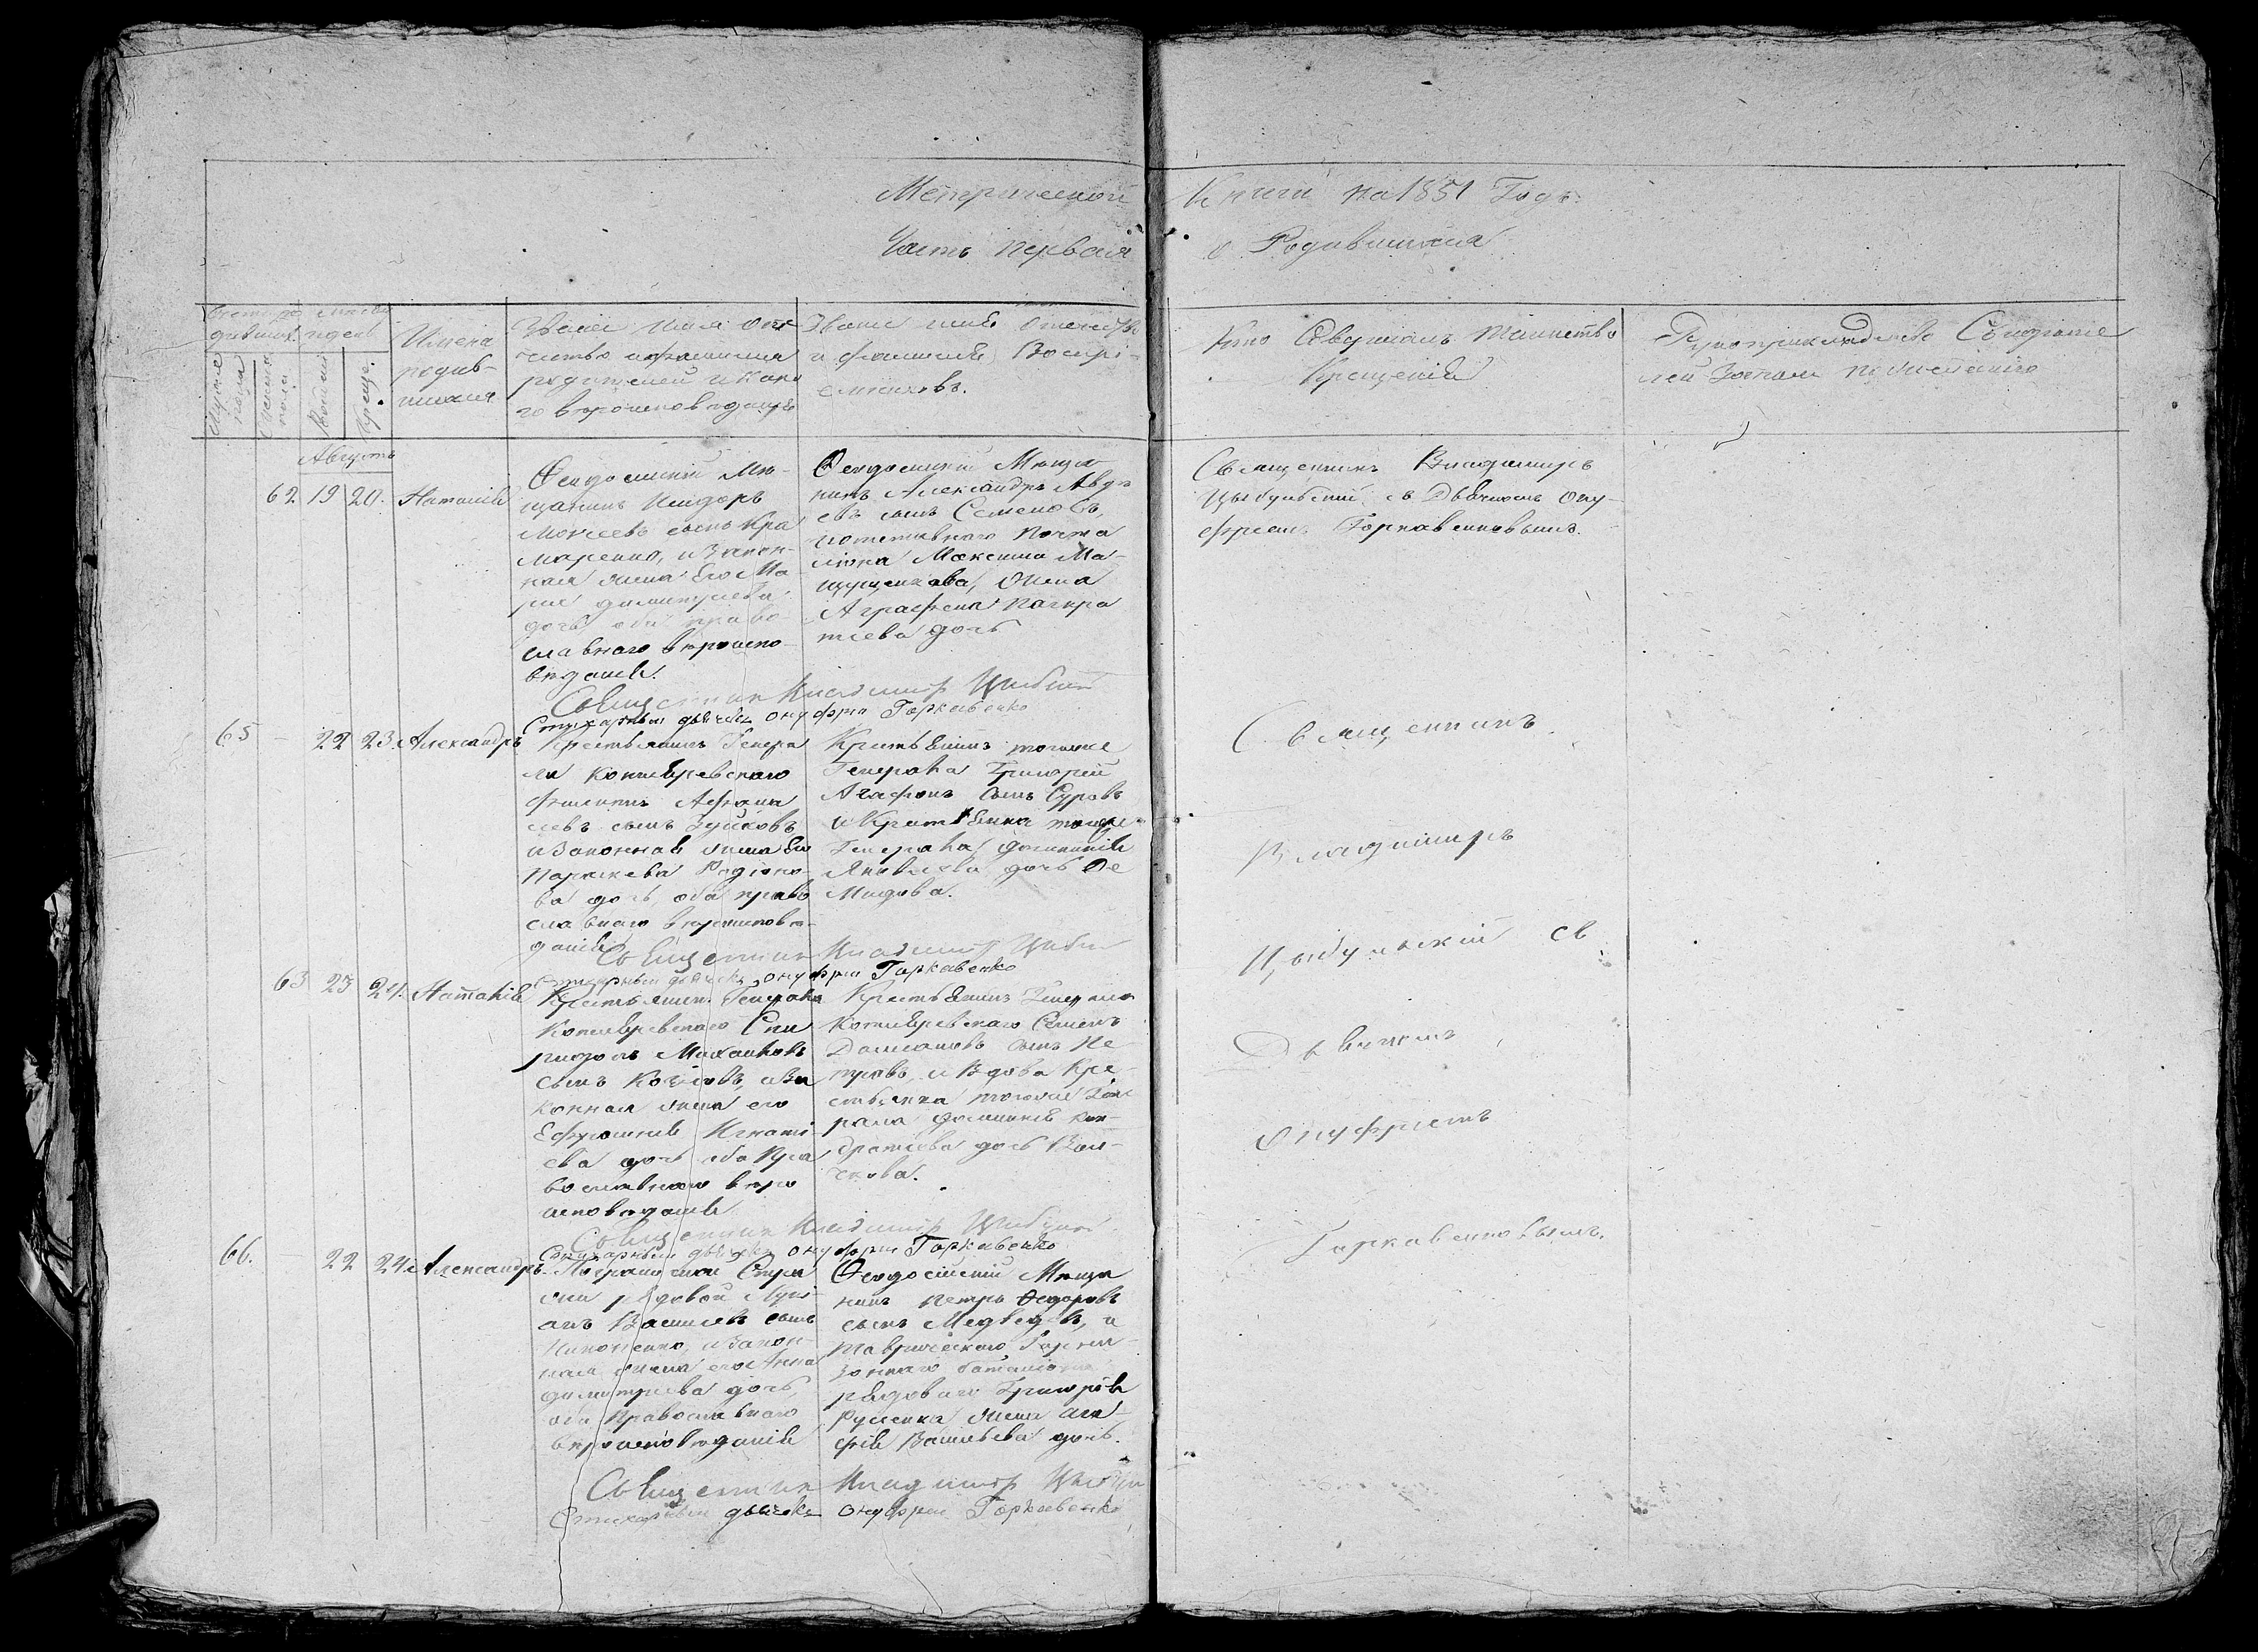 Метрической Книги на 1851 Годъ.
Часть первая о Родившихся
Имена
родив-
шихся
Званіе имя отче
ство и фамилія
родителей и како
го вероисповеданія
Званіе имя отчество
и фамилія Воспрі-
емниковъ.
Кто Совершалъ таинство
Крещенія
Рукоприкладство Свидѣте
лей Записи по желанію
Мужеска
пола
Женска
пола
Рожденія
Креще.
Августъ
62 19 20. Наталія
Ѳеодосійскій Мѣ-
щанинъ Исидоръ
Моисеевъ сынъ Кра
маренко, и Закон-
ная жена Его Ма
рия Димитріева
дочь, оба право
славнаго вѣроиспо-
веданія.
Ѳеодосійскій Мѣща
нинъ Александръ Авдѣ
евъ сынъ Семеновъ,
Максима Ма-
жена
Аграфена Панкра
тіева дочь
Священникъ Владиміръ
Цыбульскій съ Дьячкомъ Ону-
фріемъ Горкавенковымъ.
Священник Владимір
Стихарный дьячекъ онуфрій Горкавенко
65 - 22 23. Александръ
Крестьянинъ Генера
ла Котляревскаго
Афана
сіевъ сынъ Зуйковъ
и Законная жена Его
Параскева Родіоно
ва дочь, оба право
славнаго вѣроисповѣ-
данія
Крестьянинъ тогоже
Генерала Григорій
Агафоновъ сынъ Суровъ
и Крестьянка тогоже
Генерала Домникія
Яковлева дочь Де
мидова.
Священникъ
Владиміръ
Цыбульскій съ
Дьячкомъ
Онуфріемъ
Горкавенковымъ.
Священник Владимір
Стихарный дьячекъ онуфрій Горкавенко
63 23 24. Наталія
Крестьянинъ Генерала
Котляревскаго Спи
ридонъ Михайловъ
сынъ и За
конная жена его
Ефросинія Игнаті-
ева дочь оба Пра
вославнаго вѣро
исповѣданія
Крестьянинъ Генерала
Котляревскаго Семенъ
Даміановъ сынъ Пе-
тровъ, и Вдова Кре-
стьянка тогоже Гене
рала Домникія Кон-
дратіева дочь Вол-
чкова.
Священник Владимір
Стихарный дьячекъ онуфрій Горкавенко
66. - 22 24. Александръ
Пограничной Стра
жи рядовой Лукі-
анъ Васильевъ сынъ
Никоненко, и Закон-
ная жена его Анна
Димитріева дочь,
оба Православнаго
вѣроисповѣданія
Ѳеодосійскій Мѣща
нинъ Петръ Ѳедоровъ
сынъ Медведевъ, и
Таврическаго Гарни-
зоннаго баталіона
рядоваго Григорія
Руденка жена Ага-
фія Васильева дочь.
Священник Владимір
Стихарный дьячекъ онуфрій Горкавенко